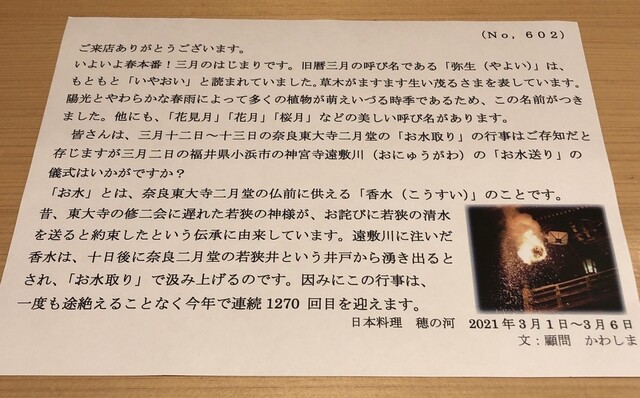 (No, 602)
ご来店ありがとうございます。
いよいよ春本番！三月のはじまりです。旧暦三月の呼び名である「弥生（やよい）」は、
もともと「いやおい」と読まれていました。草木がますます生い茂るさまを表しています。
陽光とやわらかな春雨によって多くの植物が萌えいづる時季であるため、この名前がつき
ました。他にも、「花見月」「花月」「桜月」などの美しい呼び名があります。
皆さんは、三月十二日～十三日の奈良東大寺二月堂の「お水取り」の行事はご存知だと
存じますが三月二日の福井県小浜市の神宮寺遠敷川（おにゅうがわ）の「お水送り」の
儀式はいかがですか？
「お水」とは、奈良東大寺二月堂の仏前に供える「香水（こうすい）」のことです。
昔、東大寺の修二会に遅れた若狭の神様が、お詫びに若狭の清水
を送ると約束したという伝承に由来しています。遠敷川に注いだ
香水は、十日後に奈良二月堂の若狭井という井戸から湧き出ると
され、「お水取り」で汲み上げるのです。因みにこの行事は、
一度も途絶えることなく今年で連続1270 回目を迎えます。
日本料理　穂の河　2021年3月1日～3月6日
文：顧問　かわしま